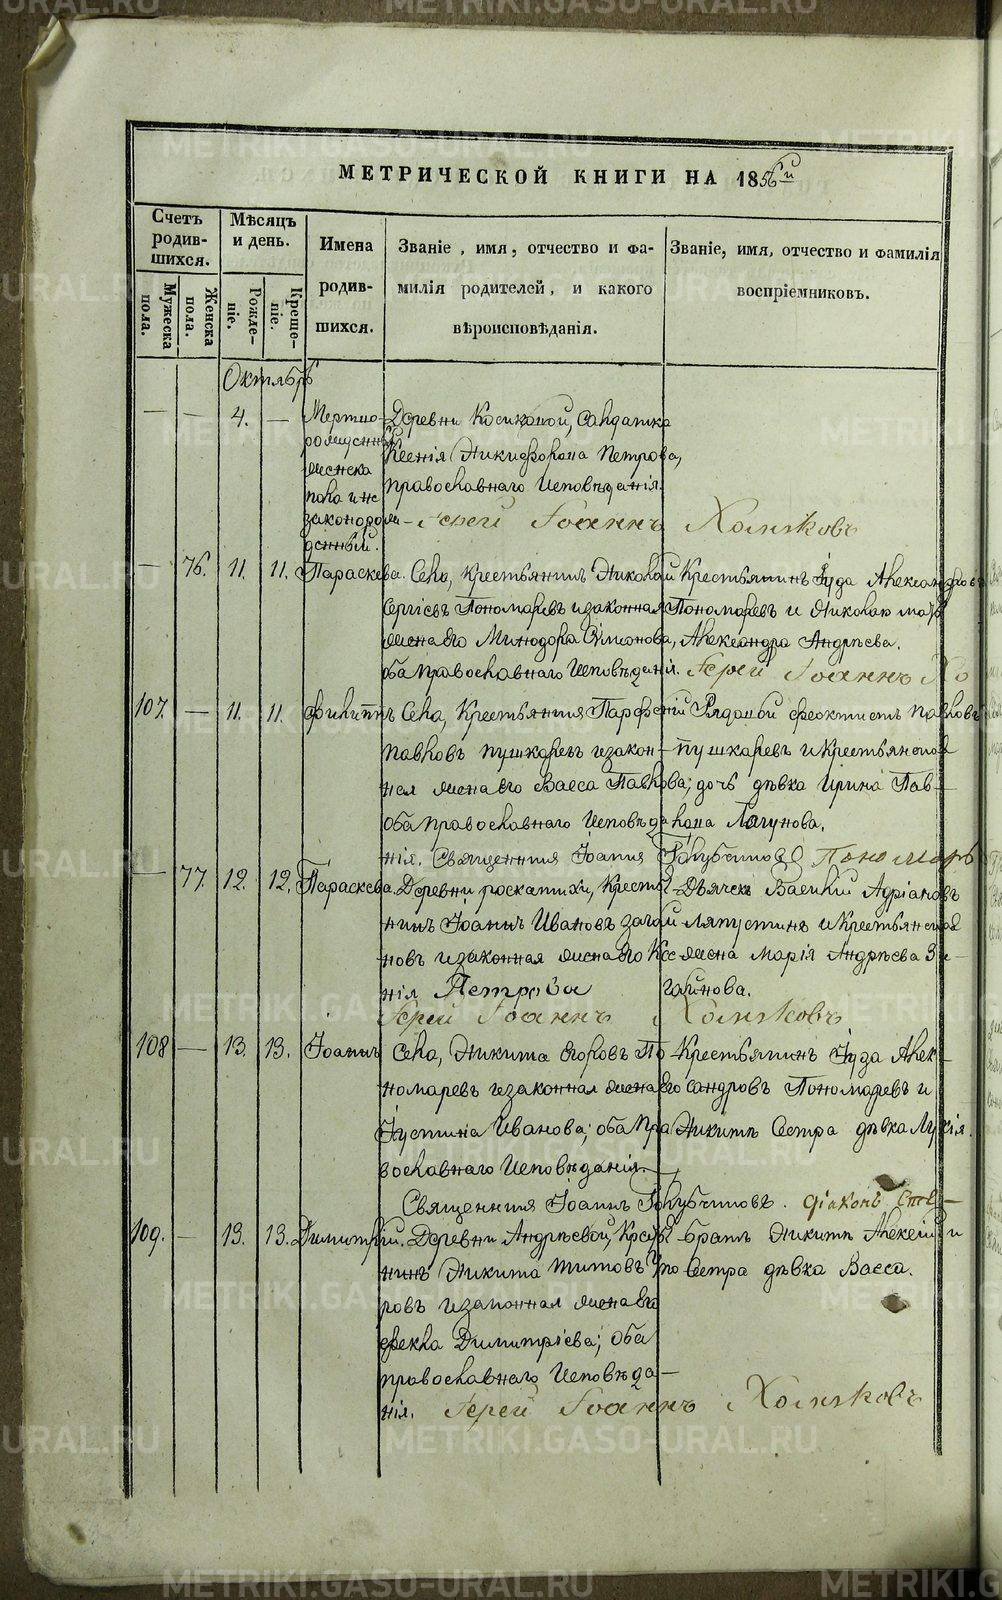 МЕТРИЧЕСКОЙ КНИГИ НА 1856й
Счетъ родив-шихся.
Мѣсяцъ и день.
Имена родив-шихся.
Званіе, имя, отчество и фа-милія родителей, и какого вѣроисповѣданія.
Званіе, имя, отчество и фамилія воспріемниковъ.
Мужеска пола.
Женска пола.
Рожде-ніе.
Креще-ніе.
Октябрь
— — 4. — Мертво-
рожденный
женска
пола и не
законорож-
денный.
Деревни Косиковой, солдатка
Ксенія Никифорова Петрова,
православнаго исповѣданія.
Іерей Іоаннъ Холмяковъ
— 76. 11. 11. Параскева.
Села, Крестьянинъ Николай
Сергіевъ Пономаревъ и законная
жена его Минодора Симеонова,
оба православнаго исповѣданія.
Крестьянинъ Іуда Александровъ
Пономаревъ и Николаю мать
Александра Андрѣева.
Іерей Іоаннъ Хо
107. — 11. 11. Филиппъ
Села, Крестьянинъ Парфеній
Павловъ Пушкаревъ и закон-
ная жена его Васса Павлова;
оба православнаго исповѣда-
нія. Священникъ Іоаннъ Голубчиковъ Пономарь
Рядовой Феоктистъ Павловъ
Пушкаревъ и Крестьянская
дочь дѣвка Ирина Пав-
лова Лягунова.
— 77. 12. 12. Параскева.
Деревни Роскатихи, Крестья-
нинъ Іоаннъ Ивановъ Загай-
новъ и законная жена его Ксе-
нія Петрова
Дьячекъ Василій Адріановъ
Ляпустинъ и Крестьянская
жена Марія Андрѣева За-
гайнова.
Іерей Іоаннъ Холмяковъ
108 — 13. 13. Іоаннъ
Села, Никита Егоровъ По-
номаревъ и законная жена его
Іустина Иванова; оба пра-
вославнаго исповѣданія.
Крестьянинъ Іуда Алек-
сандровъ Пономаревъ и
Никитѣ сестра дѣвка Лукія.
Священникъ Іоаннъ Голубчиковъ. Діаконъ Сте-
109. — 13. 13. Димитрій.
Деревни Андрѣевой, Крестья-
нинъ Никита Титовъ
ровъ и законная жена его
Фекла Димитріева; оба
православнаго исповѣда-
нія. Іерей Іоаннъ Холмяковъ
Братъ Никитѣ Алексій и
сестра дѣвка Васса.
METRIKI.GASO-URAL.RU